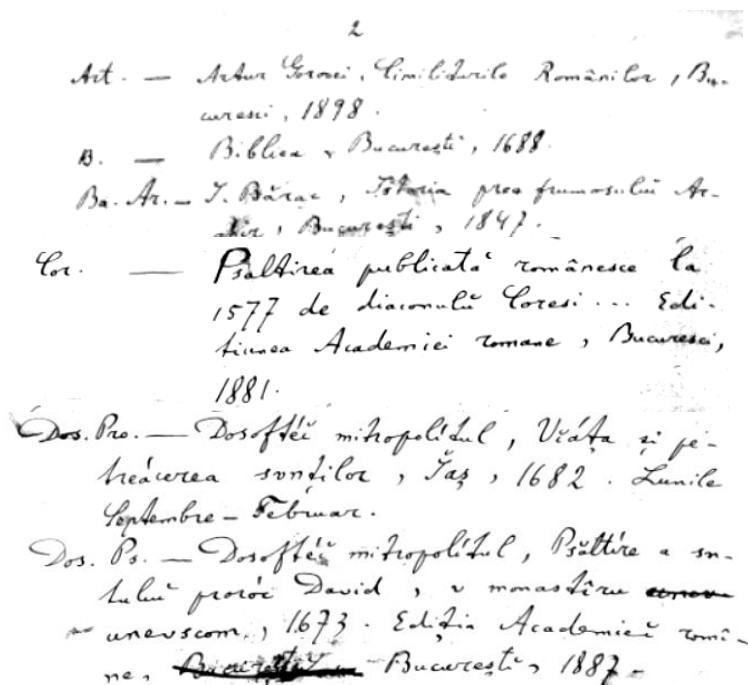 2
Art. — Artur Gorovei, Cimiliturile Românilor, Bu-
curesci, 1898.
B. — Biblica, București, 1688.
Ba. Ar. — I. Bărac, Istoria prea frumosului Ar-
ghir, București, 1847.
Cor. — Psaltirea publicată românesce la
1577 de diaconulŭ Coresi... Edi-
tiunea Academiei romane, Bucuresci,
1881.
Dos. Pro. — Dosoftéĭ mitropolítul, Viáța și pe-
treácerea svnților, Iaș, 1682. Lunile
Septembre – Februar.
Dos. Ps. — Dosoftéĭ mitropolítul, Psăltíre a sn-
tuluĭ proróc David, v monastîru
unevscom, 1673. Ediția Academieĭ româ-
ne, Bucureștĭ, 1887 –